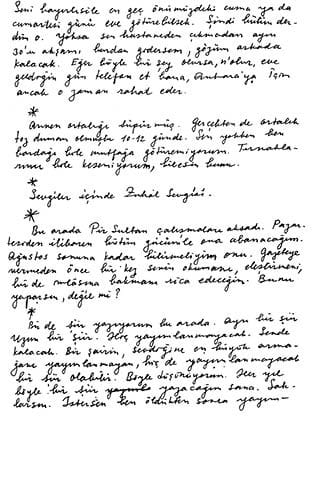 Seni hayırlısiyle en geç önümüzdeki cuma ya da
cumartesi günü eve götürebilsek. Şimdi bütün der-
dim o. Yoksa sen hastaneden çıkmadan ayın
30'u akşamı burdan gidersem, gözüm arkada
kalacak. Eğer böyle bir şey olursa, n'olur, eve
geldiğin gün telefon et bana, Ankara'ya. İçim
ancak o zaman rahat eder.
*
Annen ortalığı süpürmüş. Gerçekten de ortalık
toz duman olmuştu 10-12 günde. Sen yokken ben
bardağı bile mutfağa götüremiyorum. Tırnakla-
rımı bile kesemiyorum, bilesin bunu.
*
Sevgiler içinde Zuhal Sevgisi.
*
Bu arada Pir Sultan çalışmaları aksadı. Pazar-
tesiden itibaren bütün gücümle ona abanacağım.
Ağustos sonuna kadar bitirmeliyim onu. Gazeteye
vermeden önce bir kez senin okumanı, eleştirmeni,
bir de imlâsına bakmanı rica edeceğim. Bunu
yaparsın, değil mi?
*
Bir de şiir yazıyorum bu arada. Ayrı bir şiir
Uzun bir şiir. Hiç yayımlanmayacak. Sende
kalacak. Bir şairin, sevdiğine en büyük arma-
ğanı yayımlanmayan, hiç de yayımlanmayacak
bir şiir olabilir. Böyle düşünüyorum. Her yıl
böyle bir şiir yazacağım sana. Sak-
larsın. İstersen ben öldükten sonra yayım-